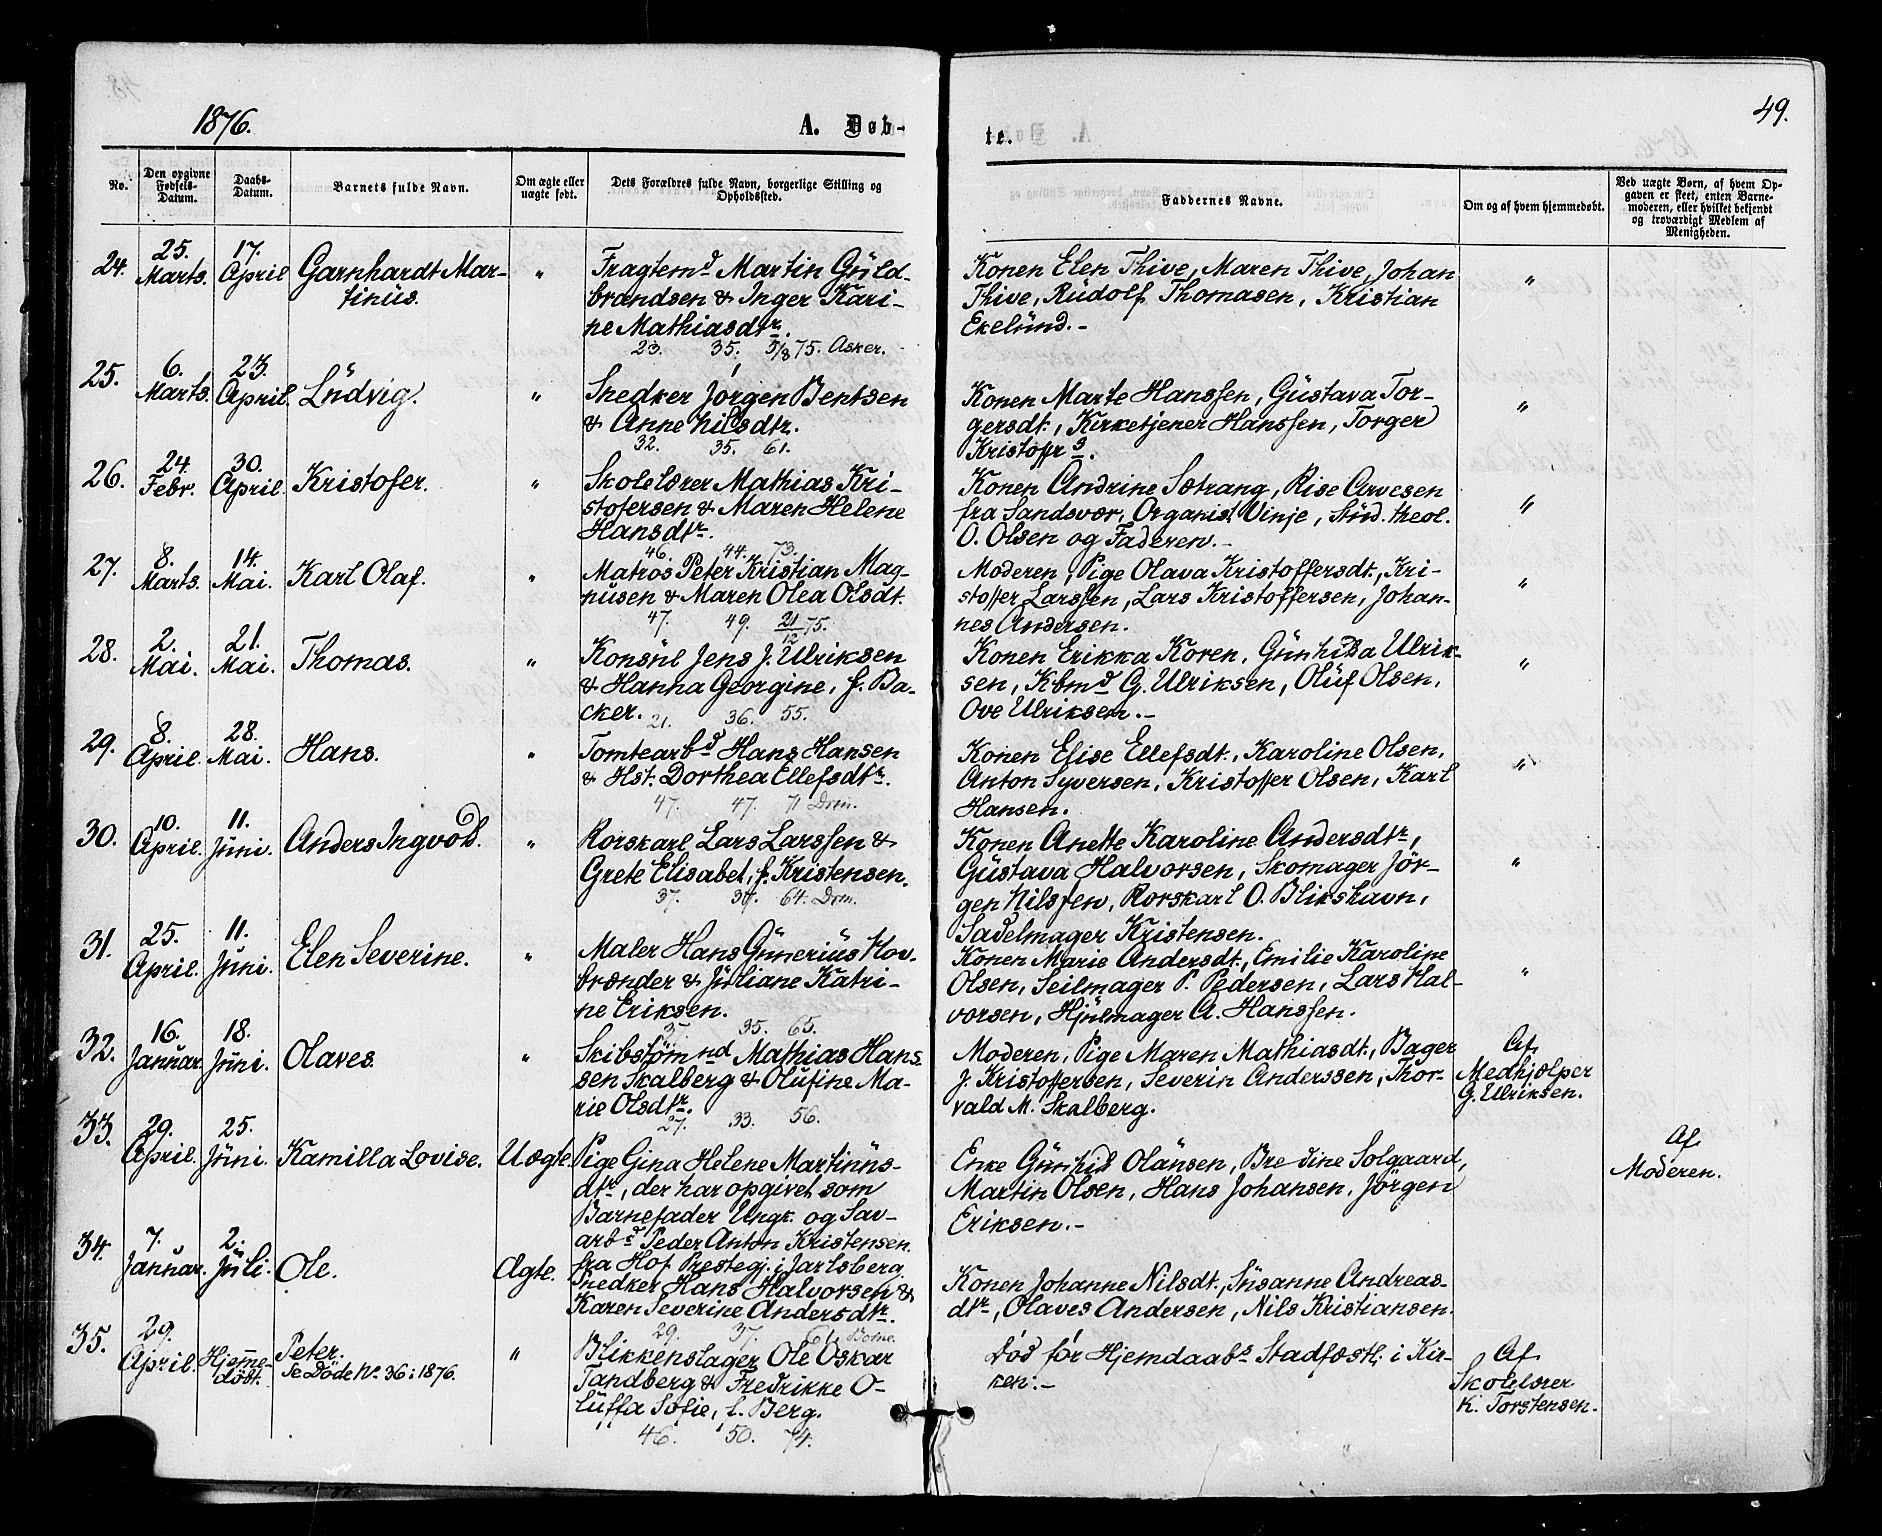 1876.
A. Døb-
te.
49.
No.
Den opgivne Fødsels-Datum.
Daabs-Datum.
Barnets fulde Navn.
Om ægte eller uægte født.
Dets Forældres fulde Navn, borgerlige Stilling og Opholdssted.
Faddernes Navne.
Om og af hvem hjemmedøbt.
Ved uægte Børn, af hvem Op-
gaven er skeet, enten Barne-
moderen, eller hvilket bekjendt
og troværdigt Medlem af
Menigheden.
24. 25. Marts. 17. April Garnhardt Mar-
tinüs.
"
Fragtemd Martin Güld-
brandsen & Inger Kari-
ne Mathiasdtr.
23. 35. 5/8 75. Asker.
Konen Elen Thive, Maren Thive, Johan
Thive, Rüdolf Thomasen, Kristian
Ekelünd.-
"
25. 6. Marts. 23. April. Lüdvig.
"
Snedker Jörgen Bentsen
& Anne Nilsdtr.
32. 35. 61.
Konen Marte Hanssen, Güstava Tor-
gersdt., Kirketjener Hanssen, Torger
Kristoffrs.
"
26. 24. Febr. 30. April. Kristofer.
"
Skolelærer Mathias Kri-
stofersen & Maren Helene
Hansdtr.
46. 44. 73.
Konen Andrine Sætrang, Rise Arvesen
fra Sandsvær, Organist Vinje, Stüd. theol.
O. Olsen og Faderen.-
"
27. 8. Marts. 14. Mai. Karl Olaf.
"
Matros Peter Kristian Mag-
nusen & Maren Olea Olsdt.
47. 49. 21/12 75.
Moderen, Pige Olava Kristoffersdt., Kri-
stoffer Larssen, Lars Kristoffersen, Johan-
nes Andersen.
"
28. 2. Mai. 21. Mai. Thomas.
"
Konsül Jens J. Ulriksen
& Hanna Georgine, f. Ba-
cker.
21. 36. 55.
Konen Erikka Koren, Günhilda Ulrik-
sen, Kbmd G. Ulriksen, Olüf Olsen,
Ove Ulriksen.-
"
29. 8. April. 28. Mai. Hans.
"
Tomtearbd Hans Hansen
& Hst. Dorthea Ellefsdtr.
47. 47. 71 Drm.
Konen Elise Ellefsdt., Karoline Olsen,
Anton Syversen, Kristoffer Olsen, Karl
Hansen.
"
30. 10. April. 11. Jüni. Anders Ingvold.
"
Rorskarl Lars Larssen &
Grete Elisabet, f. Kristensen.
37. 37. 64. Drm.
Konen Anette Karoline Andersdtr,
Güstava Halvorsen, Skomager Jör-
gen Nilssen, Rorskarl O. Blikshavn,
Sadelmager Kristensen.
"
31. 25. April. 11. Jüni. Elen Severine.
"
Maler Hans Günerius Hov-
brænder & Jüliane Katri-
ne Eriksen.
35. 65.
Konen Marie Andersdt., Emilie Karoline
Olsen, Seilmager P. Pedersen, Lars Hal-
vorsen, Hjülmager A. Hanssen.
"
32. 16. Januar. 18. Jüni. Olaves.
"
Skibstømmd Mathias Hans-
sen Skalberg & Olufine Ma-
rie Olsdtr.
27. 33. 56.
Moderen, Pige Maren Mathiasdt., Bager
J. Kristoffersen, Severin Anderssen, Thor-
vald M. Skalberg.
Af
Medhjælper
G. Ulriksen.
33. 29. April. 25. Jüni. Kamilla Lovise. Uægte.
Pige Gina Helene Martinüs-
dtr, der har opgivet som
Barnefader Ungk. og Sav-
arbd Peder Anton Kristensen.
fra Hof Prestegj. i Jarlsberg.
Enke Günhild Olänsen, Bredine Solgaard,
Martin Olsen, Hans Johansen, Jörgen
Eriksen.-
Af
Moderen.
34. 7. Januar. 2. Jüli. Ole. Ægte.
Snedker Hans Halvorsen &
Karen Severine Andersdtr.
29. 37. 61.
Konen Johanne Nilsdt., Süsanne Andreas-
dtr, Olaves Andersen, Nils Kristiansen.
35. 29. April. Hjemme-
döbt. Peter.
Se Döde No. 36 i 1876.
"
Blikkenslager Ole Oskar
Tandberg & Fredrikke O-
luffa Sofie, f. Berg.
46. 50. 74.
Död för Hjemdaabs Stadfæst. i Kir-
ken.-
Af
Skolelærer
K. Torstensen.